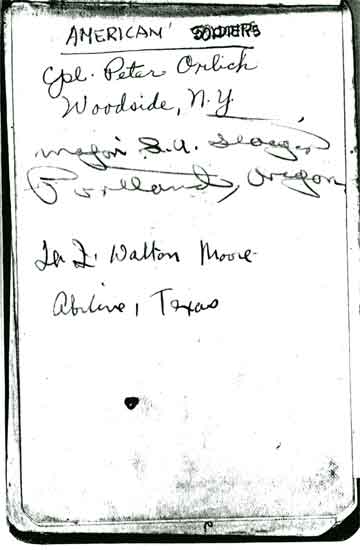 AMERICAN SOLDIERS
Cpl. Peter Orlich
Woodside, N.Y.
Major S.A.
Portland, Oregon
Walton Moore
Abilene, Texas